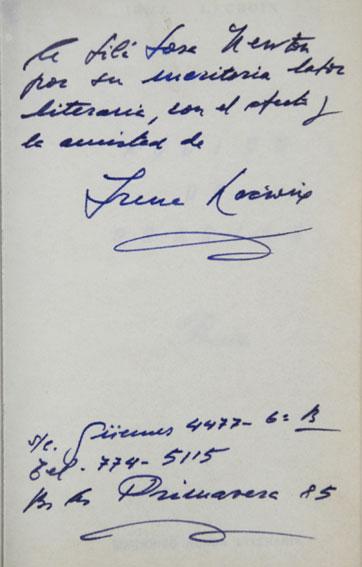 A Lili Sosa Newton
por su meritoria labor
literaria, con el afecto y
la amistad de
Irene Lacroix
s/c. Güemes 4477-6º B
Tel. 774-5115
Bs As Primavera 85